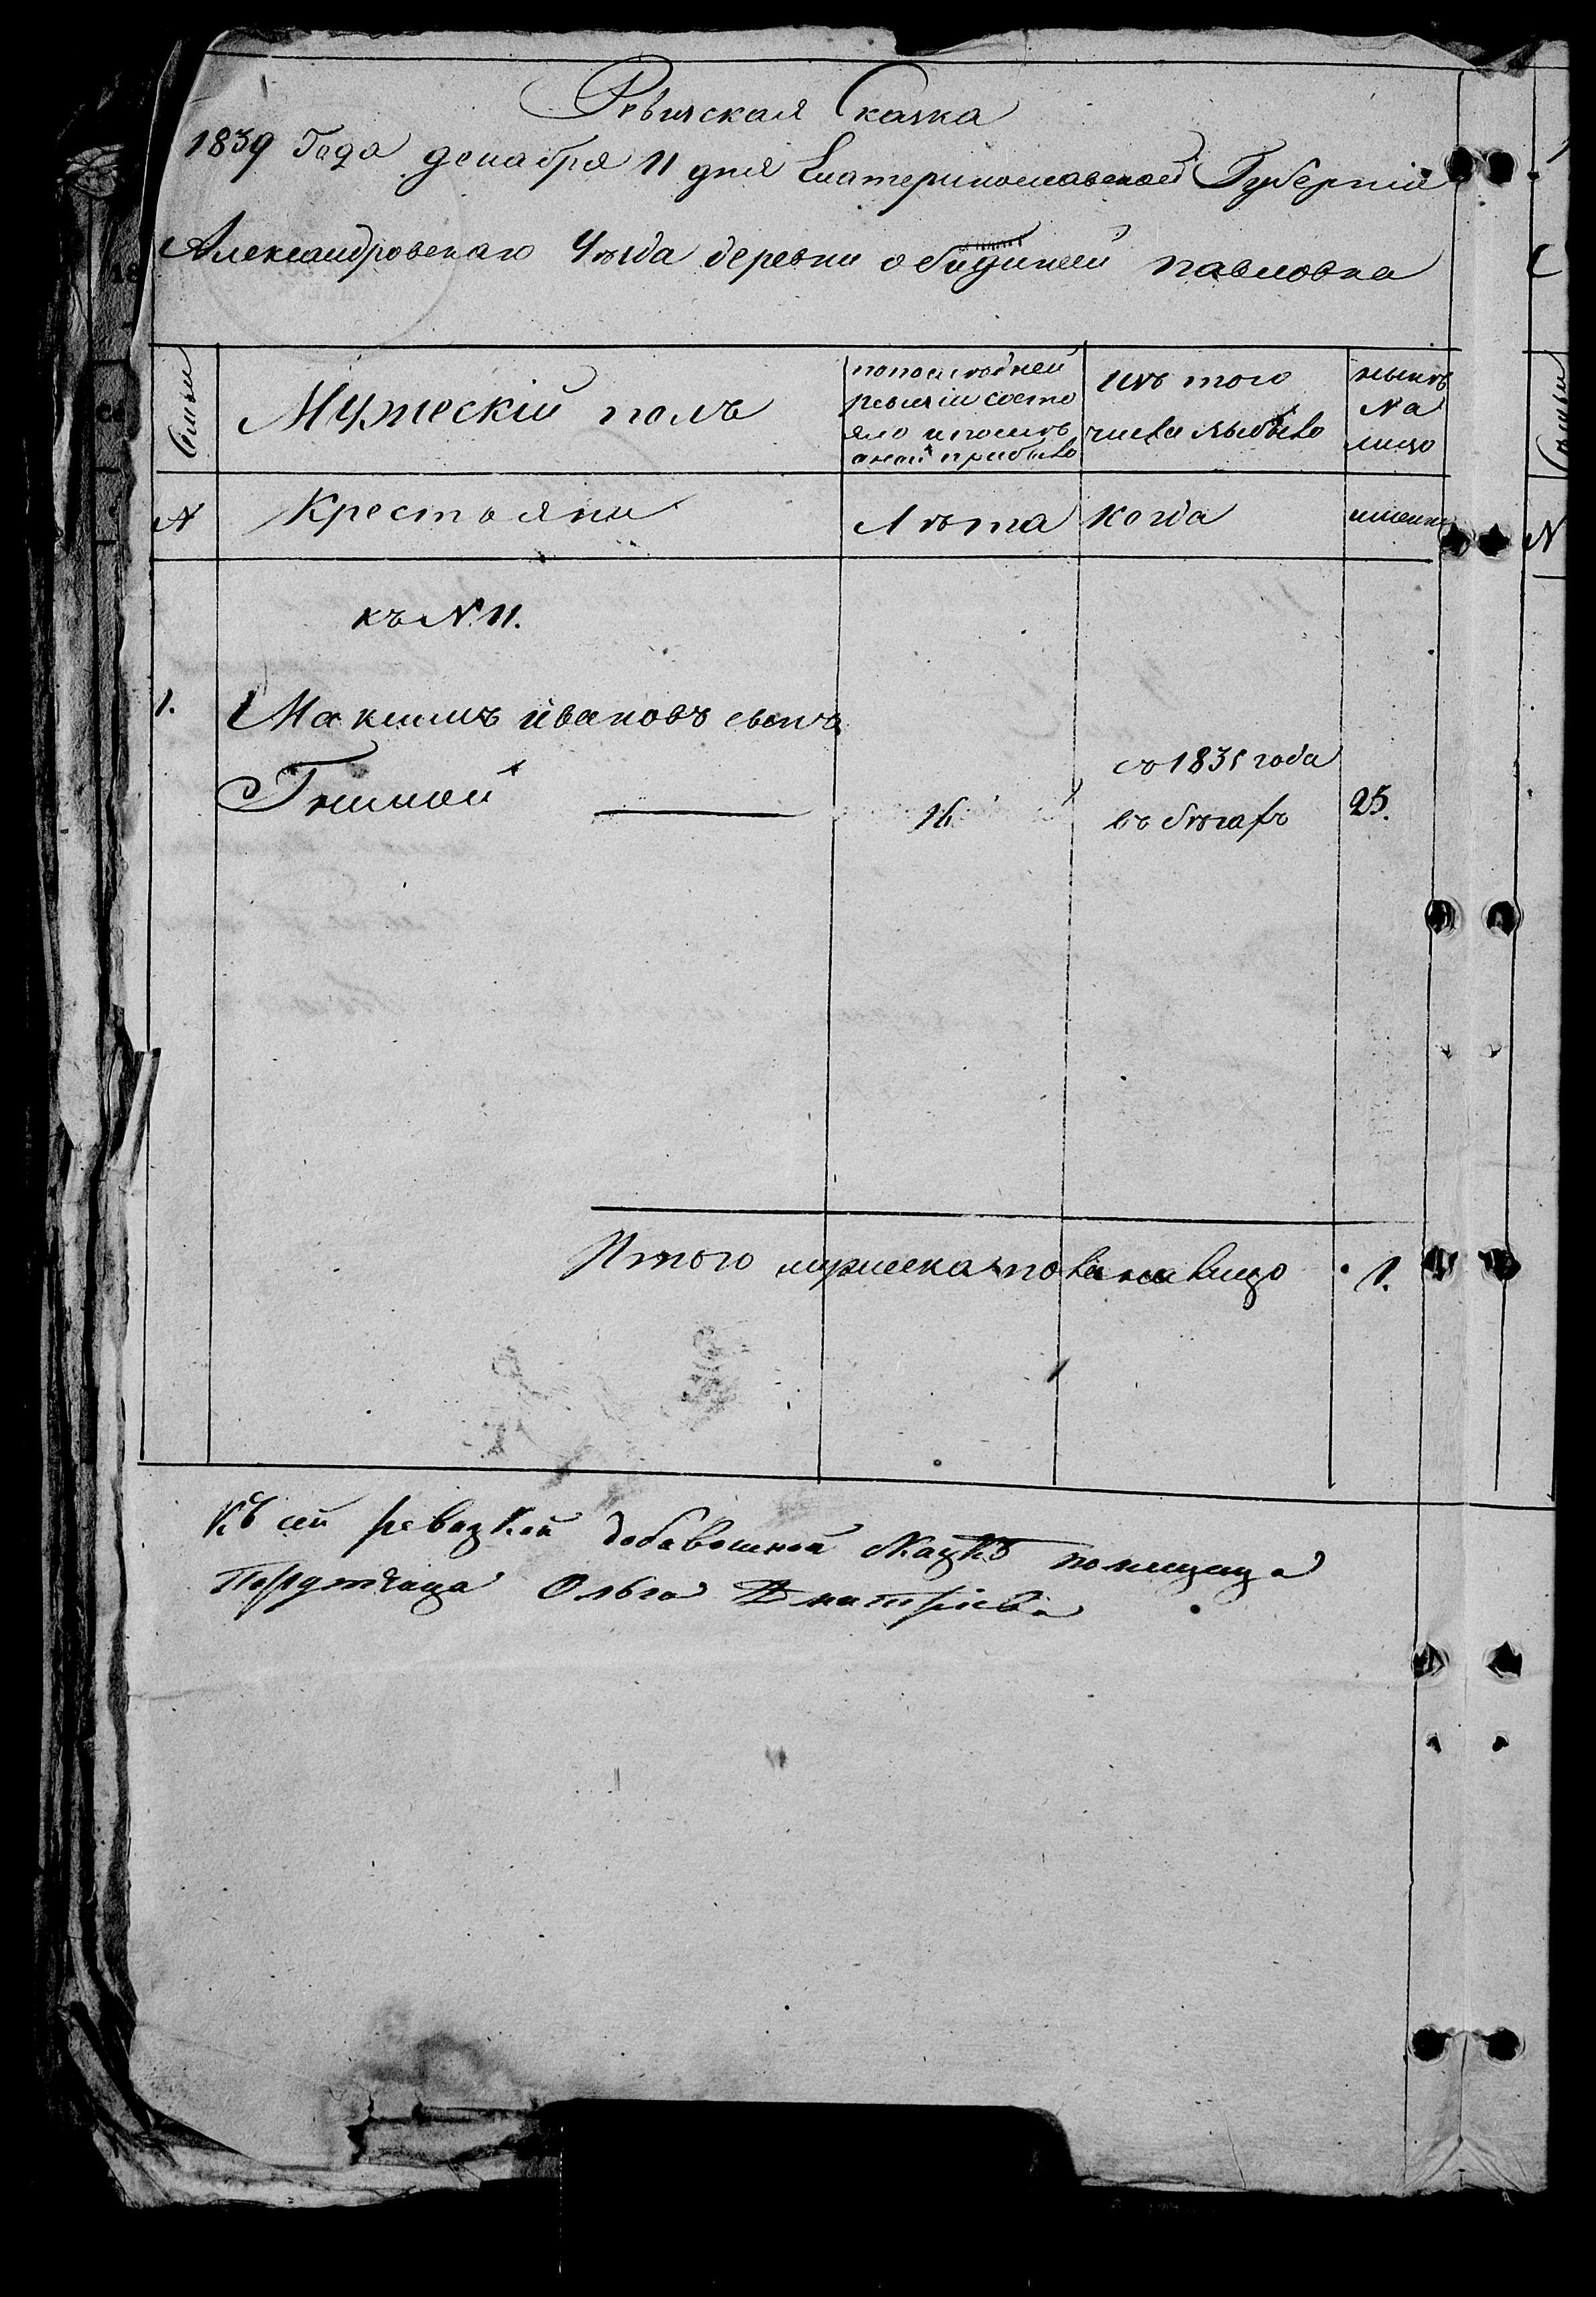 Ревизская Сказка
1839 Года декабря 11 дня Екатеринославской Губернии
Александровскаго Уезда деревни павловка
Семьи
Мужескій полъ
попоследней
ревизіи состо
яло ипосле
оной прибыло
изъ того
числа выбыло
ныне
На
лицо
N
Крестьяни
Лета
когда
къ N. 11.
1.
Максимъ ивановъ сынъ
16
съ 1835 года
въ бегахъ
25.
Итого мужеска пола на лицо
1.
Къ сей ревизкой добавошной скаске помещица
Ольга Дмитріева
N